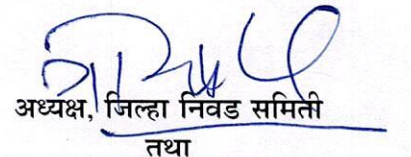 अध्यक्ष, जिल्हा निवड समिती
तथा